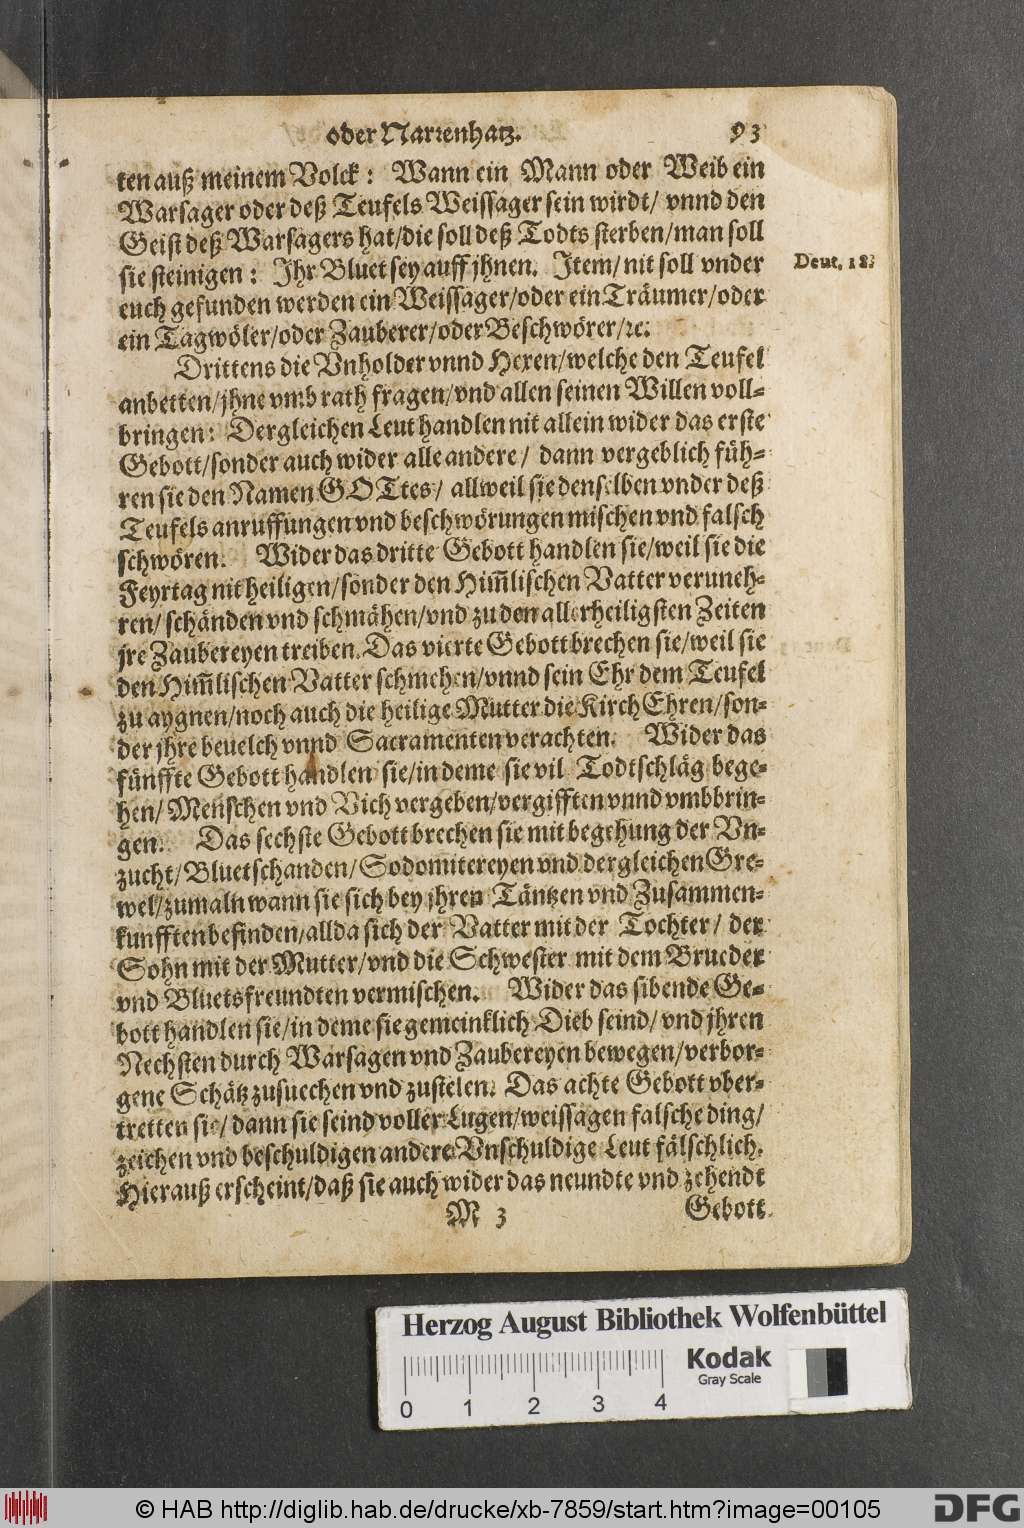 oder Narrenhatz. 93
ten auß meinem Volck: Wann ein Mann oder Weib ein
Warsager oder deß Teufels Weissager sein wirdt/ vnnd den
Geist deß Warsagers hat/die soll deß Todts sterben/man soll
sie steinigen: Ihr Bluet sey auff jhnen. Item/nit soll vnder
Deut. 18.
euch gefunden werden ein Weissager/oder ein Träumer/oder
ein Tagwöler/oder Zauberer/oder Beschwörer/ꝛc.
Drittens die Vnholder vnnd Hexen/welche den Teufel
anbetten/jhne vmb rath fragen/vnd allen seinen Willen voll-
bringen: Dergleichen Leut handlen nit allein wider das erste
Gebott/sonder auch wider alle andere/ dann vergeblich füh-
ren sie den Namen GOTtes/ allweil sie denselben vnder deß
Teufels anruffungen vnd beschwörungen mischen vnd falsch
schwören. Wider das dritte Gebott handlen sie/weil sie die
Feyrtag nit heiligen/sonder den Him̃lischen Vatter veruneh-
ren/ schänden vnd schmähen/vnd zu den allerheiligsten Zeiten
jre Zaubereyen treiben. Das vierte Gebott brechen sie/weil sie
den Him̃lischen Vatter schmehen/vnnd sein Ehr dem Teufel
zu aygnen/noch auch die heilige Mutter die Kirch Ehren/son-
der jhre beuelch vnnd Sacramenten verachten. Wider das
fünffte Gebott handlen sie/in deme sie vil Todtschläg bege-
hen/ Menschen vnd Vich vergeben/vergifften vnnd vmbbrin-
gen. Das sechste Gebott brechen sie mit begehung der Vn-
zucht/Bluetschanden/Sodomitereyen vnd dergleichen Gre-
wel/zumaln wann sie sich bey jhren Täntzen vnd Zusammen-
kunfften befinden/allda sich der Vatter mit der Tochter/ der
Sohn mit der Mutter/vnd die Schwester mit dem Brueder
vnd Bluetsfreundten vermischen. Wider das sibende Ge-
bott handlen sie/in deme sie gemeinklich Dieb seind/vnd jhren
Nechsten durch Warsagen vnd Zaubereyen bewegen/verbor-
gene Schätz zusuechen vnd zustelen. Das achte Gebott vber-
tretten sie/ dann sie seind voller Lugen/weissagen falsche ding/
zeichen vnd beschuldigen andere Vnschuldige Leut fälschlich.
Hierauß erscheint/daß sie auch wider das neundte vnd zehendt
M 3 Gebott
Herzog August Bibliothek Wolfenbüttel
Kodak
Gray Scale
0 1 2 3 4
© HAB http://diglib.hab.de/drucke/xb-7859/start.htm?image=00105
DFG